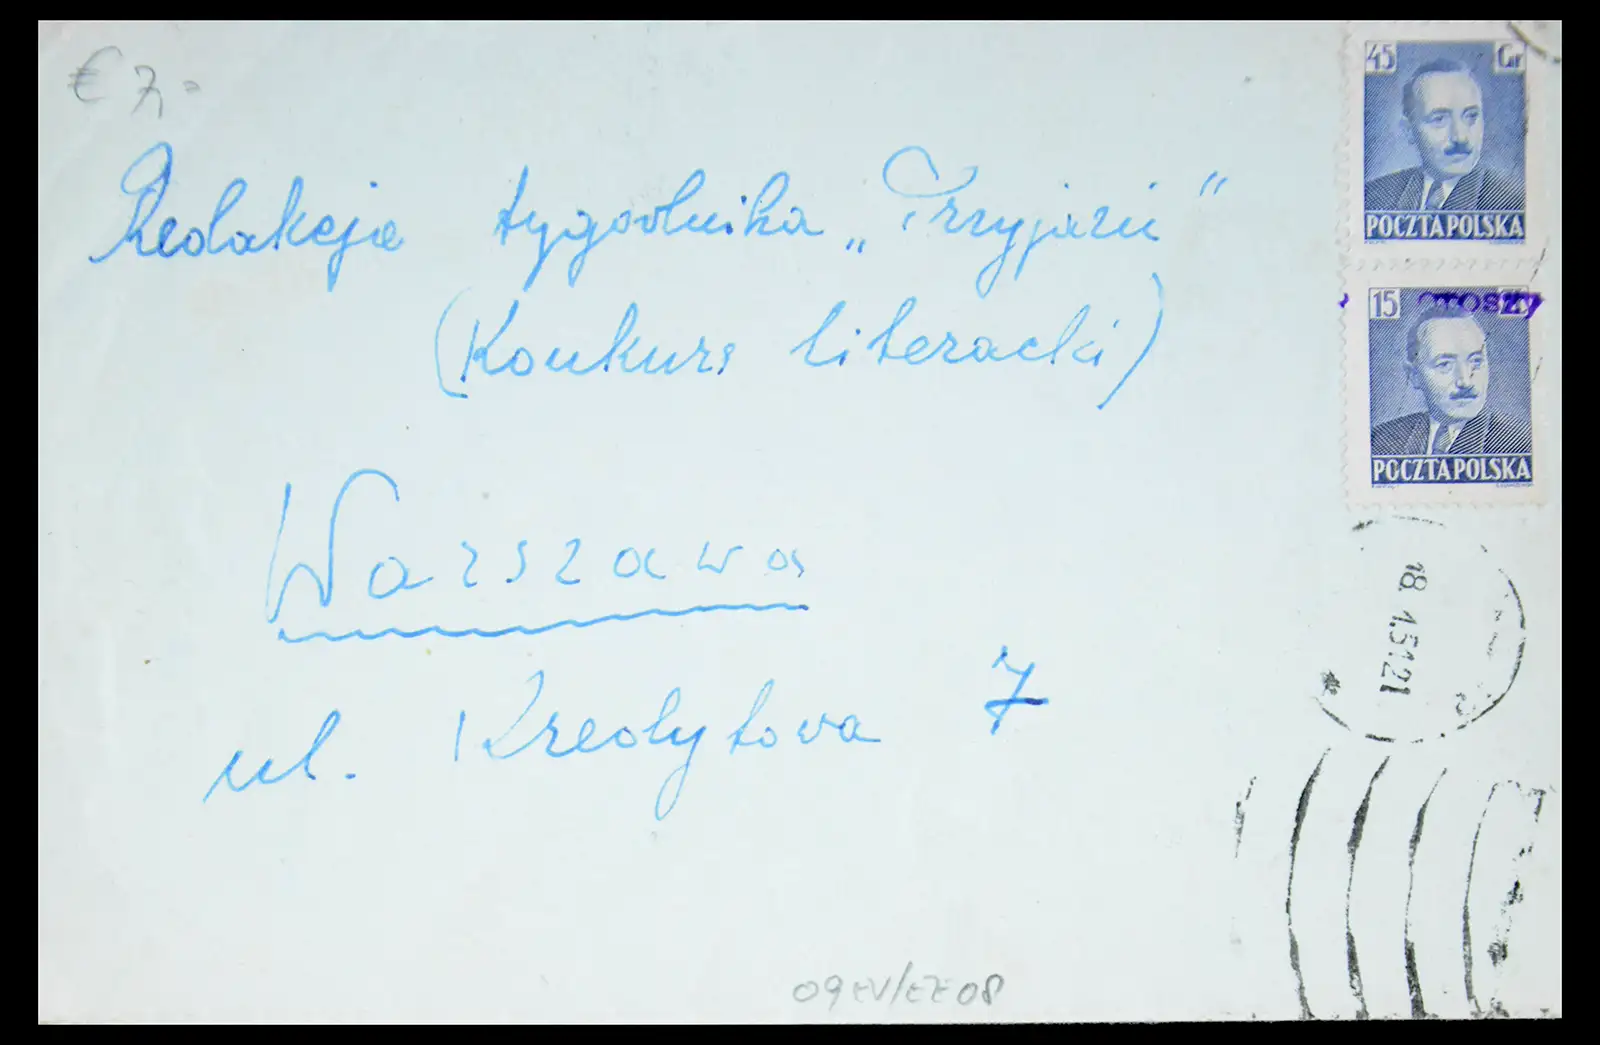 € 7,-
45 Gr
POCZTA POLSKA
15
GROSZY
POCZTA POLSKA
Redakcja tygodnika „Przyjaźń"
(Konkurs literacki)
Warszawa
ul. Kredytowa 7
18.1.51.21